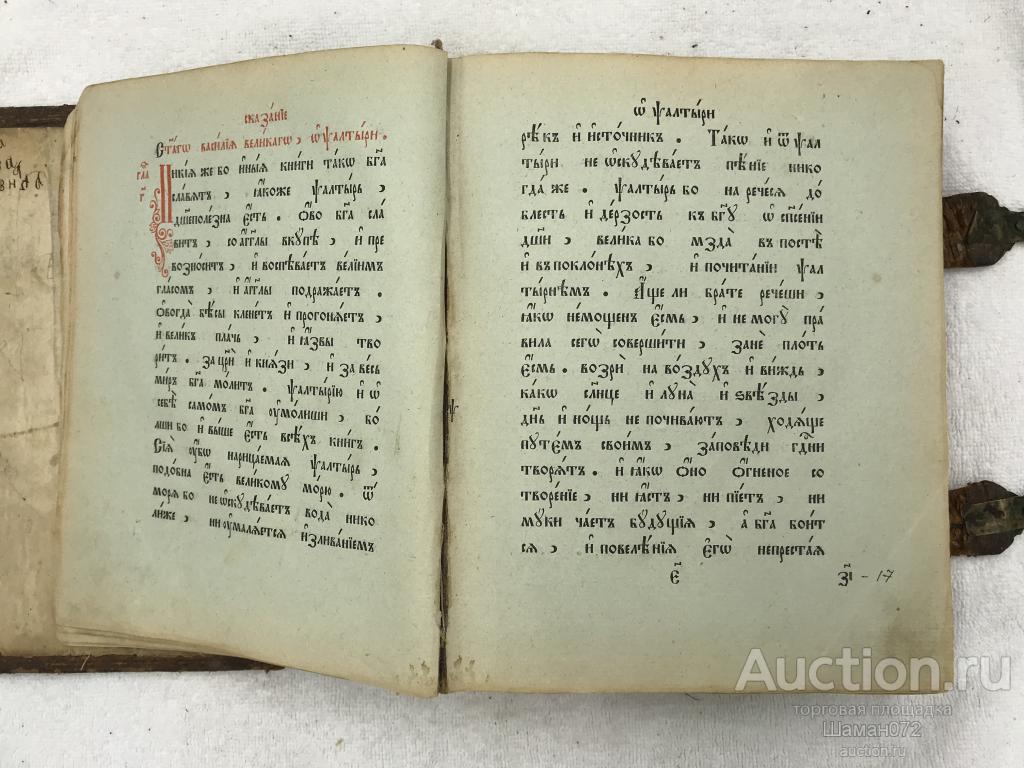 сказа́нїе
Ст҃а́гѡ васи́лїѧ вели́кагѡ, ѡ҆ ѱалты́ри.
гла
Никі́ѧ же бо и҆ны́ѧ кни́ги та́кѡ бг҃а
сла́вѧтъ, ꙗ҆́коже ѱалты́рь,
дш҃еполе́зна є҆́сть. Ѻ҆́во бг҃а сла́
витъ, со а҆́гг҃лы вку́пѣ, и҆ пре
возно́ситъ, и҆ воспѣва́етъ ве́лїимъ
гла́сомъ, и҆ а҆́гг҃лы подража́етъ.
Ѻ҆вогда̀ бѣ́сы клене́тъ и҆ прогонѧ́етъ,
и҆ вели́къ пла́чь, и҆ ꙗ҆́звы тво
ри́тъ. за цр҃и̑ и҆ кнѧ́зи, и҆ за ве́сь
ми́ръ бг҃а мо́литъ. ѱалты́рїю и҆ ѡ҆
себѣ̀ само́мъ бг҃а ᲂу҆мо́лиши, бо́
лши бо и҆ вы́ше є҆́сть всѣ́хъ кни́гъ.
Сїѧ̀ ᲂу҆́бѡ нарица́емаѧ ѱалты́рь,
подо́бна є҆́сть вели́кому мо́рю. ѿ
мо́рѧ бо не ѡ҆скꙋдѣва́етъ вода̀ нико
ли́же, ни ᲂу҆малѧ́етсѧ и҆злива́нїемъ
ѡ҆ ѱалты́ри
рѣ́къ и҆ и҆сто́чникъ. Та́кѡ и҆ ѿ ѱал
ты́ри не ѡ҆скꙋдѣва́етъ пѣ́нїе нико
гда́ же. Ѱалты́рь бо на рече́сѧ до́
блесть и҆ де́рзость къ бг҃ꙋ ѡ҆ сп҃се́нїи
дш҃и, вели́ка бо мзда̀ въ постѣ̀
и҆ въ покло́нѣхъ, и҆ почита́нїи ѱал
ты́рнѣмъ. А҆́ще ли бра́те рече́ши,
ꙗ҆́кѡ не́мощенъ є҆́смь, и҆ не могꙋ̀ пра́
вила сегѡ̀ соверши́ти, занѐ пло́ть
є҆́смь. возрѝ на во́здухъ и҆ ви́ждь,
ка́кѡ сл҃нце и҆ лꙋна̀ и҆ ѕвѣ́зды,
дн҃ь и҆ но́щь не почива́ютъ, ходѧ́ще
путе́мъ свои́мъ, за́повѣди гдⷭ҇ни
творѧ́тъ. и҆ ꙗ҆́кѡ ѻ҆́но ѻ҆́гненое со
творе́нїе, ни ꙗ҆́стъ, ни пїе́тъ, ни
муки ча́етъ будꙋщїѧ, а҆ бг҃а бои́т
сѧ, и҆ повелѣ́нїѧ є҆гѡ̀ непреста́ѧ
є҃ з҃і - 17
Auction.ru
торговая площадка
Шаман072
auction.ru